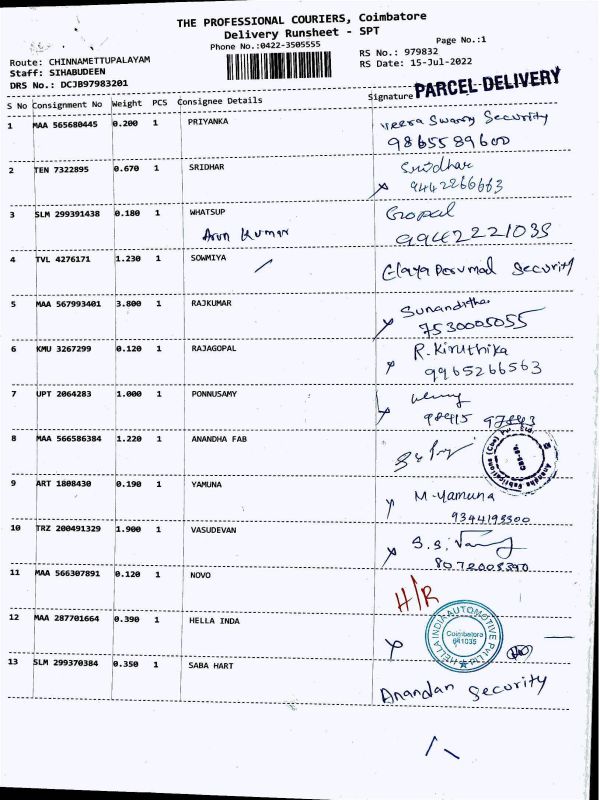 THE PROFESSIONAL COURIERS, Coimbatore
Delivery Runsheet - SPT
Phone No.:0422-3505555
Page No.:1
Route: CHINNAMETTUPALAYAM
Staff: SIHABUDEEN
DRS No.: DCJB97983201
RS No.: 979832
RS Date: 15-Jul-2022
PARCEL-DELIVERY
S No Consignment No Weight PCS Consignee Details Signature
1 MAA 565680445 0.200 1 PRIYANKA Veera Swamy Security
9865589600
2 TEN 7322895 0.670 1 SRIDHAR Sridhar
9442266663
3 SLM 299391438 0.180 1 WHATSUP Gopal
Arun Kumar 9942221035
4 TVL 4276171 1.230 1 SOWMIYA Elaya Perumal Security
5 MAA 567993401 3.800 1 RAJKUMAR Sunanditha
7530005055
6 KMU 3267299 0.120 1 RAJAGOPAL R. Kiruthika
9965266563
7 UPT 2064283 1.000 1 PONNUSAMY
98415 97843
8 MAA 566586384 1.220 1 ANANDHA FAB
Anandha Fabrications (Cbe) Pvt. Ltd.
9 ART 1808430 0.190 1 YAMUNA M-Yamuna
9344193300
10 TRZ 200491329 1.900 1 VASUDEVAN
8072008390
11 MAA 566307891 0.120 1 NOVO H/R
12 MAA 287701664 0.390 1 HELLA INDA
HELLA INDIA AUTOMOTIVE Pvt. Ltd.
Coimbatore
641035
13 SLM 299370384 0.350 1 SABA HART Anandan Security